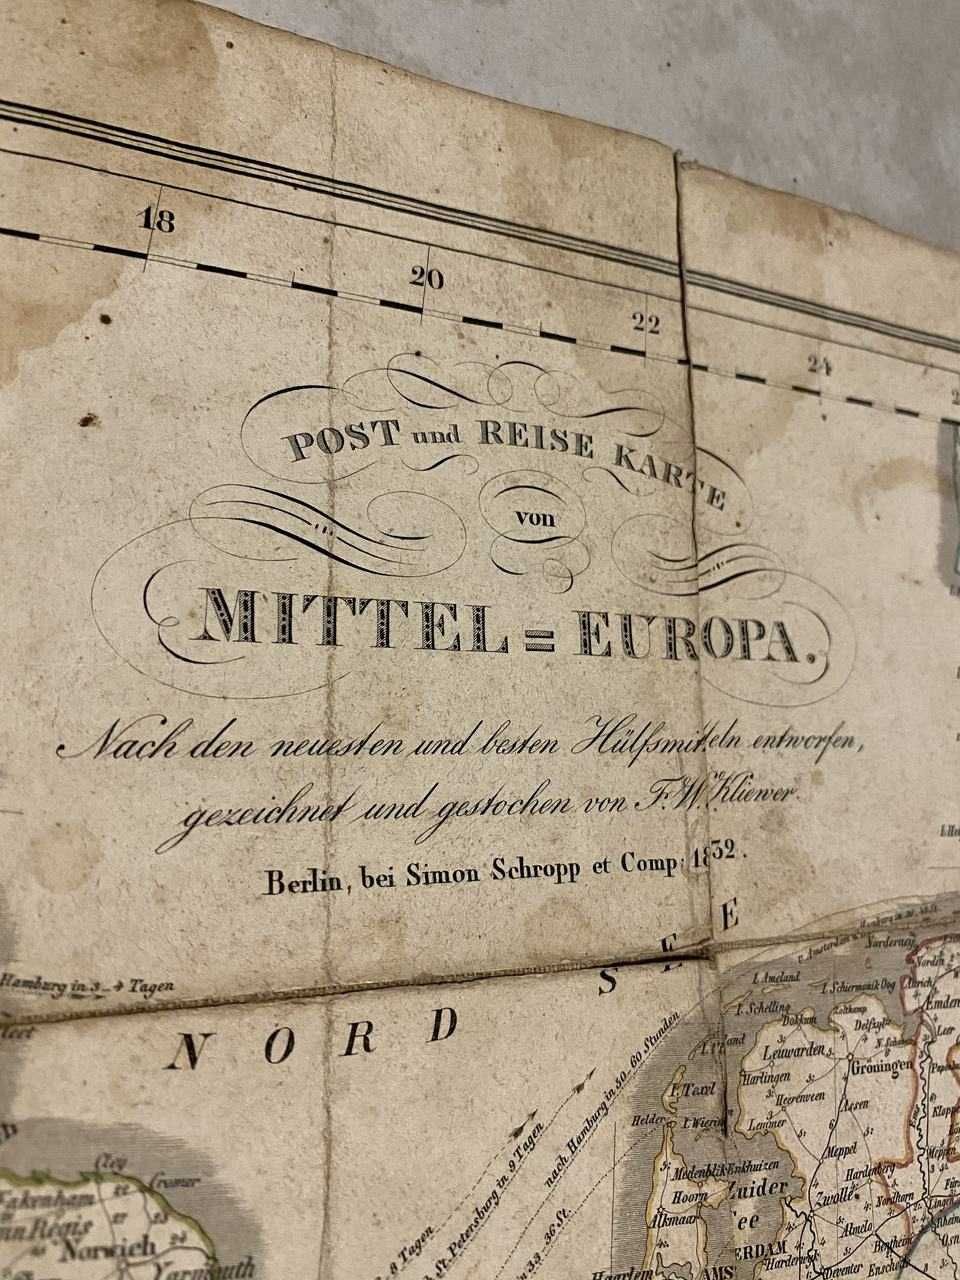 18
20
22
24
POST und REISE KARTE
von
MITTEL = EUROPA.
Nach den neuesten und besten Hülfsmitteln entworfen,
gezeichnet und gestochen von F. W. Kliewer.
Berlin, bei Simon Schropp et Comp. 1832.
Hamburg in 3_4 Tagen
NORD SEE
nach Hamburg in 50_60 Stunden
St. Petersburg in 9 Tagen
8 Tagen
in 33_36 St.
Norderney
I. Ameland
I. Schiermonik Oog
I. Schelling
Dokkum
Delfzyl
Norden
Aurich
Emden
Leer
Leuwarden
Gröningen
Harlingen
Heerenveen
Assen
I. Texel
Helder
I. Wierin
Lemmer
Meppel
Meppen
Medenblik
Enkhuizen
Hardenberg
Hoorn
Zuider
Zwolle
Nordhorn
Lingen
Alkmaar
Almelo
Bentheim
Harderwyk
Haarlem
AMS
ERDAM
Deventer
Enschede
Cley
Cromer
Fakenham
Regis
Norwich
Yarmouth